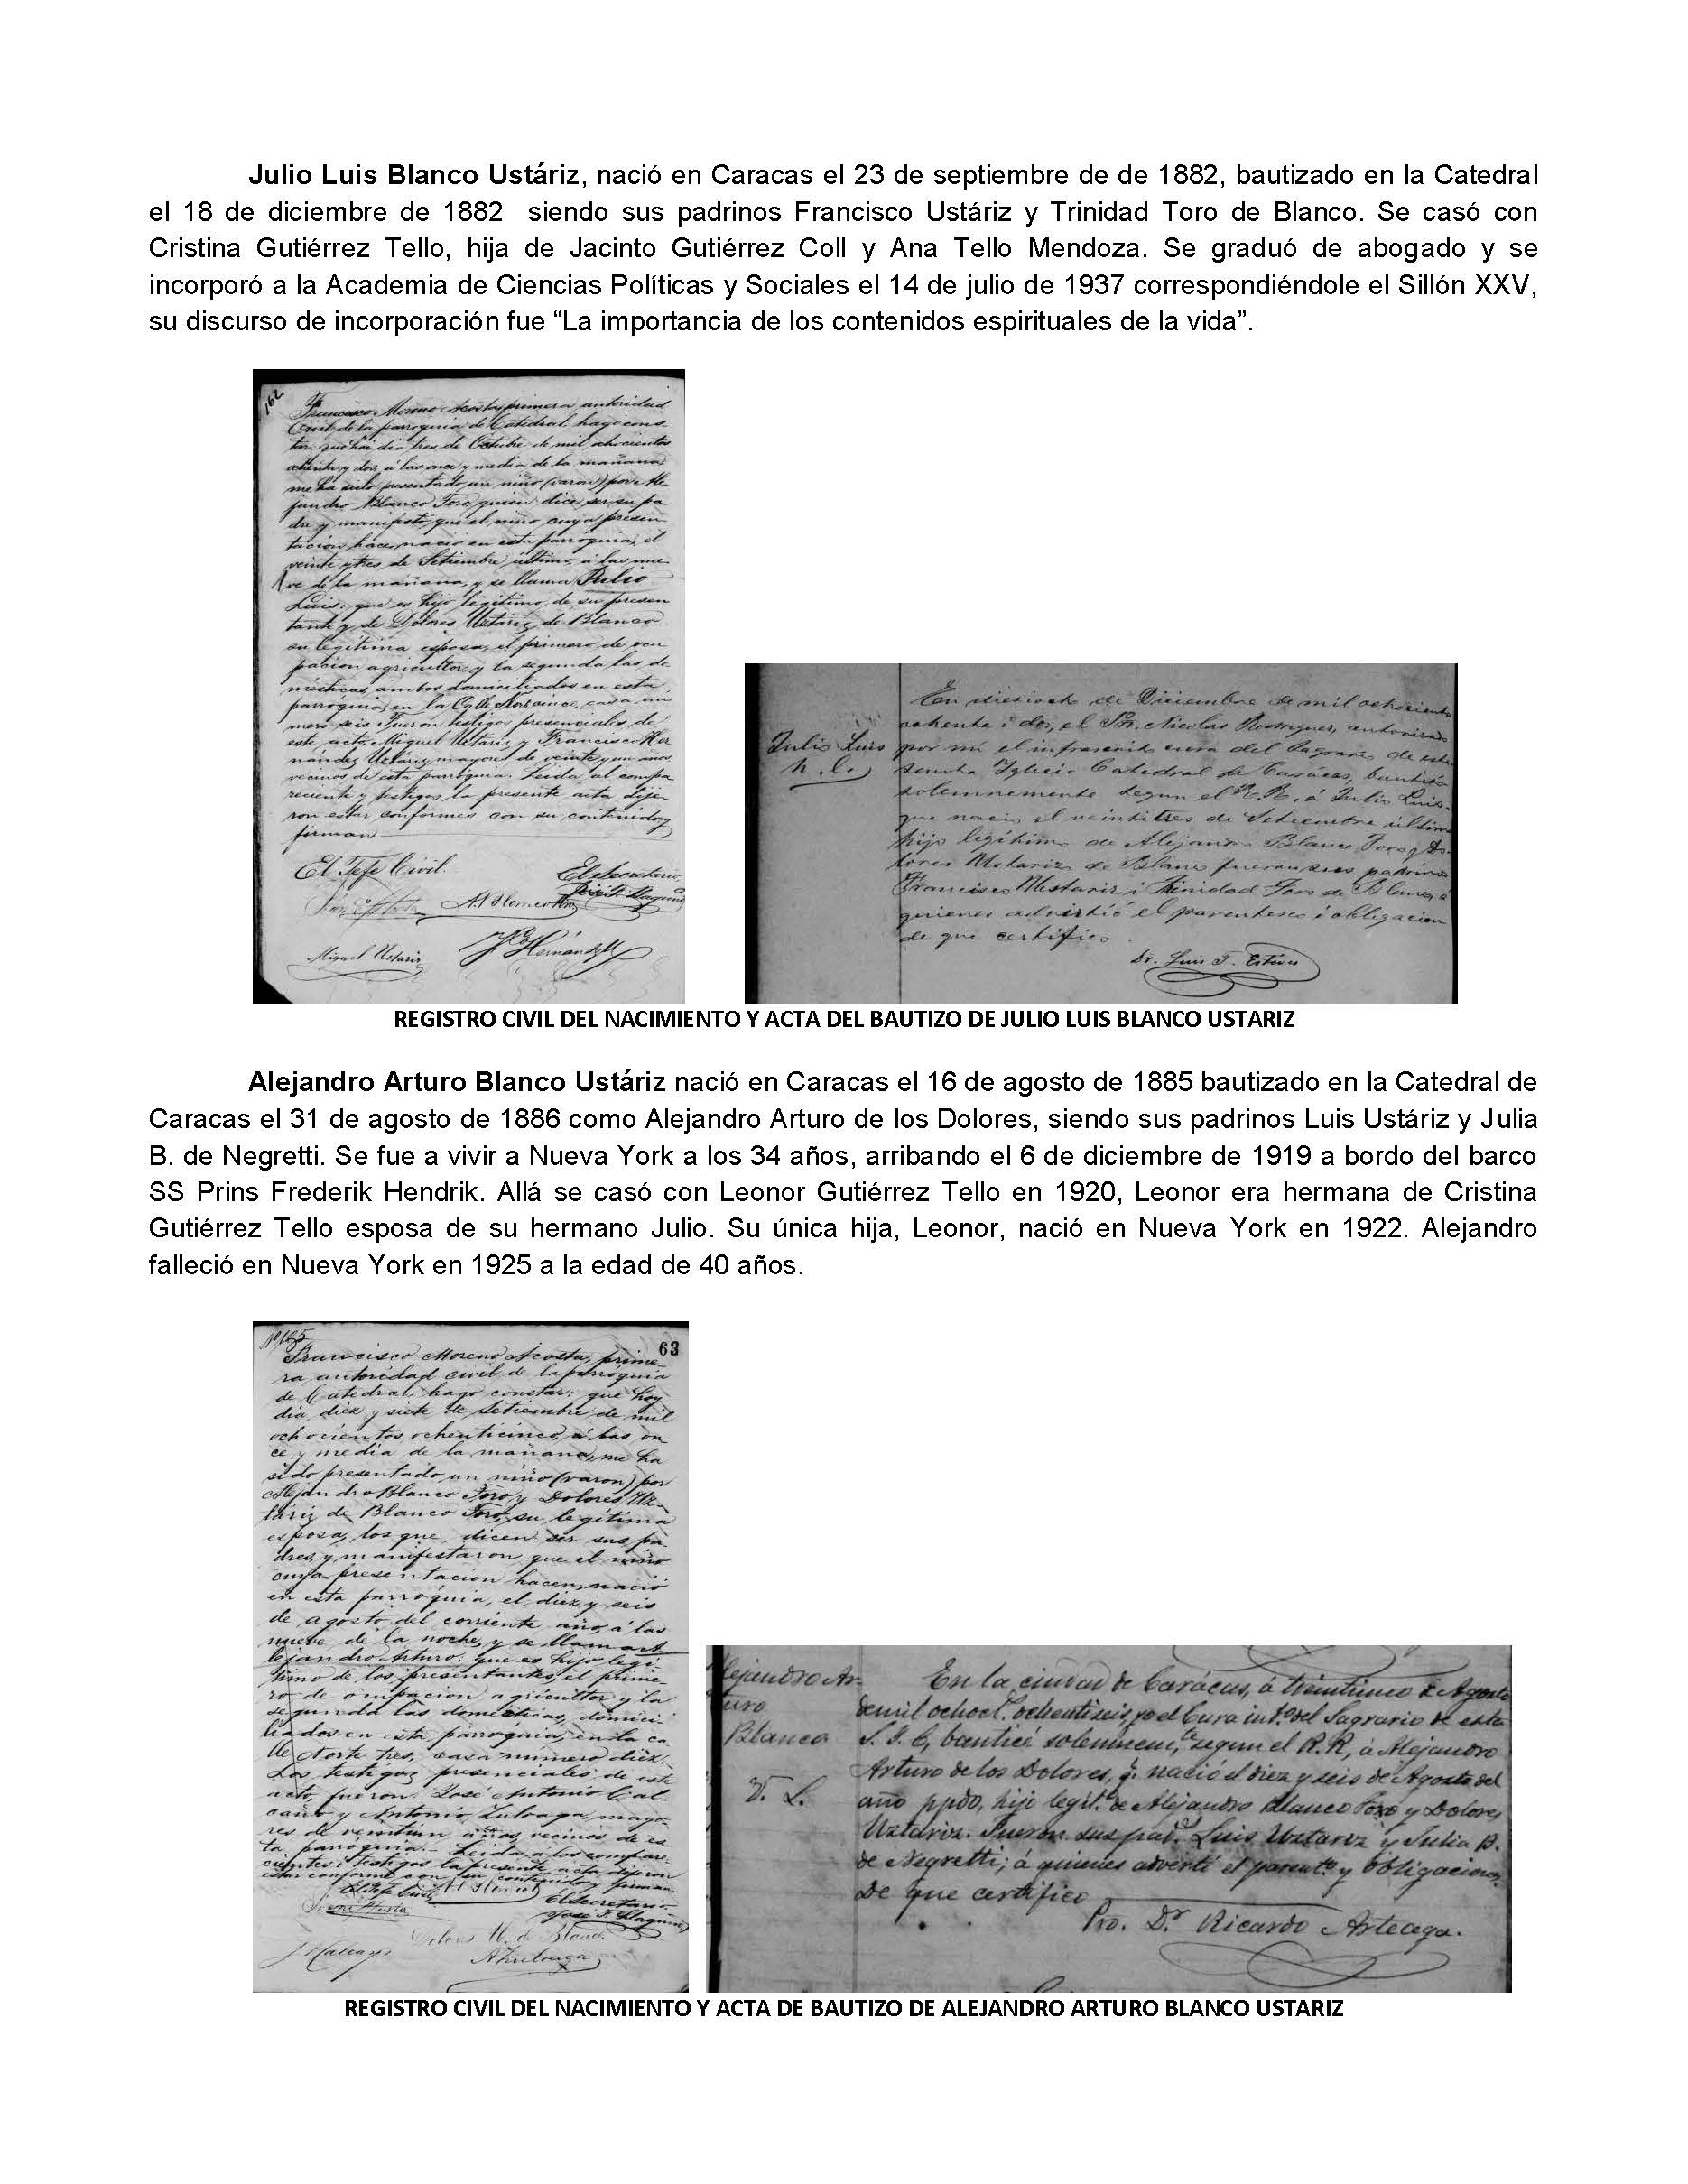 Julio Luis Blanco Ustáriz, nació en Caracas el 23 de septiembre de de 1882, bautizado en la Catedral
el 18 de diciembre de 1882 siendo sus padrinos Francisco Ustáriz y Trinidad Toro de Blanco. Se casó con
Cristina Gutiérrez Tello, hija de Jacinto Gutiérrez Coll y Ana Tello Mendoza. Se graduó de abogado y se
incorporó a la Academia de Ciencias Políticas y Sociales el 14 de julio de 1937 correspondiéndole el Sillón XXV,
su discurso de incorporación fue “La importancia de los contenidos espirituales de la vida”.
162
Francisco Moreno Acosta, primera autoridad
Civil de la parroquia de Catedral, hago cons-
tar: que hoi dia tres de Octubre de mil ochocientos
ochenta y dos, á las once y media de la mañana,
me ha sido presentado un niño (varon) por Ale
jandro Blanco Toro, quien dice ser su pa
dre y manifestó, que el niño cuya presen
tacion hace, nació en esta parroquia, el
veinte y tres de Setiembre último, á las nue
ve de la mañana, y se llama Julio
Luis: que es hijo legítimo de su presen
tante y de Dolores Ustáriz de Blanco
su legítima esposa, el primero de ocu
pacion agricultor, y la segunda las do
mésticas, ambos domiciliados en esta
parroquia, en la Calle Norte once, casa nú
mero seis. Fueron testigos presenciales de
este acto Miguel Ustáriz y Francisco Her
nández Ustáriz, mayores de veinte y un años
vecinos de esta parroquia. Leida al compa
reciente y testigos la presente acta dije
ron estar conformes con su contenido y
firman
El Jefe Civil.
El Secretario,
Miguel Ustariz
Hernández U
Julio Luis
h. l.
En dieziocho de Diciembre de mil ochocientos
ochenta i dos, el Pbro. Nicolas Rodriguez, autorizado
por mí el infrascrito cura del Sagrario de esta
Santa Iglecia Catedral de Carácas, bautizó
solemnemente segun el R. R. á Julio Luis
que nació el veintitres de Setiembre último
hijo legítimo de Alejandro Blanco Toro y Do-
lores Ustariz de Blanco fueron sus padrinos
Francisco Ustariz i Trinidad Toro de Blanco, á
quienes advirtió el parentesco i obligacion
de que certifico.
Dr. Luis F. Estéves
REGISTRO CIVIL DEL NACIMIENTO Y ACTA DEL BAUTIZO DE JULIO LUIS BLANCO USTARIZ
Alejandro Arturo Blanco Ustáriz nació en Caracas el 16 de agosto de 1885 bautizado en la Catedral de
Caracas el 31 de agosto de 1886 como Alejandro Arturo de los Dolores, siendo sus padrinos Luis Ustáriz y Julia
B. de Negretti. Se fue a vivir a Nueva York a los 34 años, arribando el 6 de diciembre de 1919 a bordo del barco
SS Prins Frederik Hendrik. Allá se casó con Leonor Gutiérrez Tello en 1920, Leonor era hermana de Cristina
Gutiérrez Tello esposa de su hermano Julio. Su única hija, Leonor, nació en Nueva York en 1922. Alejandro
falleció en Nueva York en 1925 a la edad de 40 años.
Nº 165
63
Francisco Moreno Acosta, prime-
ra autoridad civil de la parroquia
de Catedral, hago constar: que hoy
dia diez y siete de Setiembre de mil
ochocientos ochenticinco, á las on
ce y media de la mañana, me ha
sido presentado un niño (varon) por
Alejandro Blanco Toro y Dolores Uz-
táriz de Blanco Toro, su legítima
esposa, los que dicen ser sus pa-
dres, y manifestaron que el niño
cuya presentacion hacen, nació
en esta parróquia, el diez y seis
de agosto del corriente año, á las
nueve de la noche, y se llama A-
lejandro Arturo: que es hijo legí
timo de los presentantes, el prime-
ro de ocupacion agricultor y la
segunda las domésticas, domici-
liados en esta parróquia, en la ca
lle Norte tres, casa número diez.
Los testigos presenciales de este
acto, fueron José Antonio Cal-
caño y Antonio Zuloaga, mayo-
res de veintiun años, vecinos de es
ta parróquia. Leida a los compare-
cientes i testigos la presente acta dijeron
estar conforme con su contenido y firman.
El Jefe Civil,
El Secretario
Dolores U. de Blanco
A Zuloaga
Alejandro Ar-
turo
Blanco
En la ciudad de Carácas, á treintiuno de Agosto
de mil ochoct. ochentiseis, yo el Cura intº. del Sagrario de esta
S. I. C, bauticé solemnemte. segun el R. R, á Alejandro
Arturo de los Dolores, q. nació el diez y seis de Agosto del
año ppdo, hijo legit. de Alejandro Blanco Toro y Dolores
Uztariz. Fueron sus pad. Luis Uztariz y Julia B.
de Negretti; á quienes advertí el parentº. y obligaciones.
De que certifico
Pro. Dr. Ricardo Arteaga.
REGISTRO CIVIL DEL NACIMIENTO Y ACTA DE BAUTIZO DE ALEJANDRO ARTURO BLANCO USTARIZ